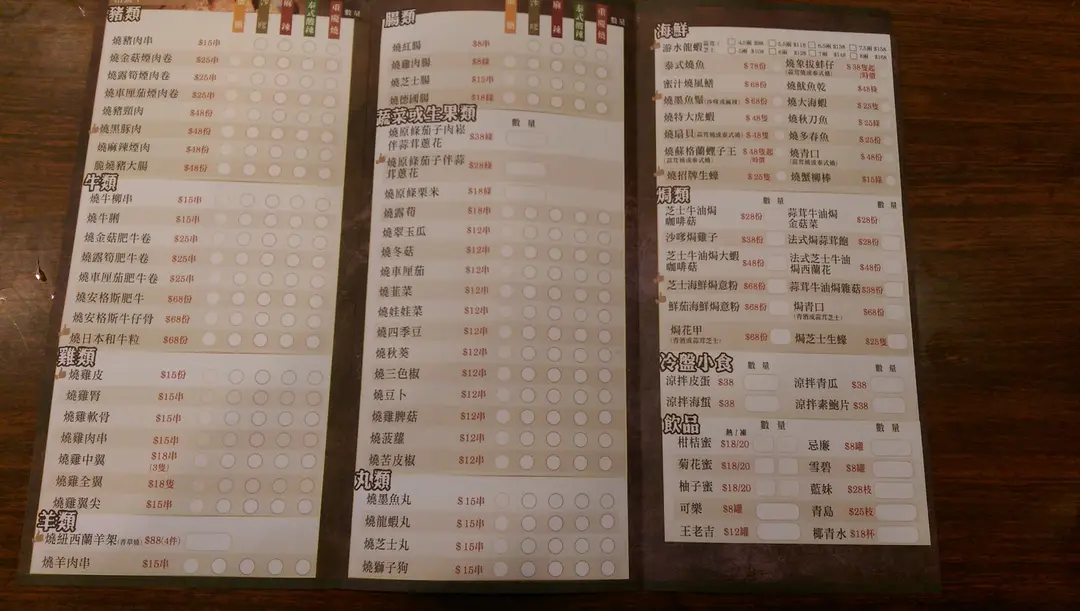 豬類
數量
燒豬肉串 $15串
燒金菇煙肉卷 $25串
燒露筍煙肉卷 $25串
燒車厘茄煙肉卷 $25串
燒豬頸肉 $48份
燒黑豚肉 $48份
燒麻辣煙肉 $48份
脆燒豬大腸 $48份
牛類
燒牛柳串 $15串
燒牛脷 $15串
燒金菇肥牛卷 $25串
燒露筍肥牛卷 $25串
燒車厘茄肥牛卷 $25串
燒安格斯肥牛 $68份
燒安格斯牛仔骨 $68份
燒日本和牛粒 $68份
雞類
燒雞皮 $15份
燒雞腎 $15串
燒雞軟骨 $15串
燒雞肉串 $15串
燒雞中翼 $18串
(3隻)
燒雞全翼 $18隻
燒雞翼尖 $15串
羊類
燒紐西蘭羊架(香草燒) $88(4件)
燒羊肉串 $15串
腸類
麻辣
泰式酸辣
重慶燒
數量
燒紅腸 $8串
燒雞肉腸 $8條
燒芝士腸 $15串
燒德國腸 $18條
蔬菜或生果類
數量
燒原條茄子肉崧
伴蒜茸蔥花 $38條
燒原條茄子伴蒜
茸蔥花 $28條
燒原條粟米 $18條
燒露筍 $18串
燒翠玉瓜 $12串
燒冬菇 $12串
燒車厘茄 $12串
燒韮菜 $12串
燒娃娃菜 $12串
燒四季豆 $12串
燒秋葵 $12串
燒三色椒 $12串
燒豆卜 $12串
燒雞脾菇 $12串
燒菠蘿 $12串
燒苦皮椒 $12串
丸類
燒墨魚丸 $15串
燒龍蝦丸 $15串
燒芝士丸 $15串
燒獅子狗 $15串
海鮮
游水龍蝦
泰式燒魚 $78份
燒象拔蚌仔 $38隻起
(蒜茸燒或泰式燒) 時價
蜜汁燒風鱔 $68份
燒魷魚乾 $48條
燒墨魚鬚 $68份
燒大海蝦 $25隻
燒特大虎蝦 $48隻
燒秋刀魚 $25條
燒扇貝(蒜茸燒或泰式燒) $48隻
燒多春魚 $25份
燒蘇格蘭蟶子王 $48隻起
(蒜茸燒或泰式燒) 時價
燒青口 $48份
(蒜茸燒或泰式燒)
燒招牌生蠔 $25隻
燒蟹柳棒 $15條
焗類
數量
數量
芝士牛油焗
咖啡菇 $28份
蒜茸牛油焗
金菇菜 $28份
沙嗲焗雞子 $38份
法式焗蒜茸飽 $28份
芝士牛油焗大蝦
咖啡菇 $48份
法式芝士牛油
焗西蘭花 $48份
芝士海鮮焗意粉 $68份
蒜茸牛油焗雜菇 $38份
鮮茄海鮮焗意粉 $68份
焗青口 $68份
(青酒或蒜茸芝士)
焗花甲 $68份
(青酒或蒜茸芝士)
焗芝士生蠔 $25隻
冷盤小食
數量
數量
涼拌皮蛋 $38
涼拌青瓜 $38
涼拌海蜇 $38
涼拌素鮑片 $38
飲品
熱/凍
數量
數量
柑桔蜜 $18/20
忌廉 $8罐
菊花蜜 $18/20
雪碧 $8罐
柚子蜜 $18/20
藍妹 $28枝
可樂 $8罐
青島 $25枝
王老吉 $12罐
椰青水 $18杯